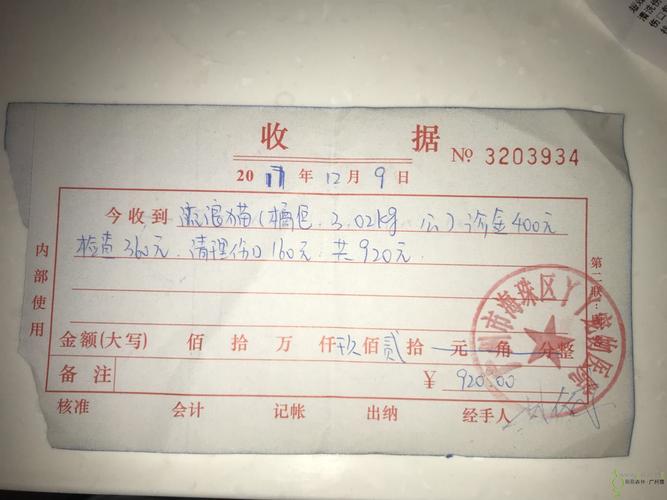 收 据
№ 3203934
2017 年 12 月 9 日
今收到 流浪猫(橘色 3.02kg 公) 诊金400元
检查360元、清理伤口160元 共920元
金额(大写) 佰 拾 万 仟 玖 佰 贰 拾 元 角 分整
备注 ¥ 920.00
核准 会计 记帐 出纳 经手人
内部使用
第二联:
州市海珠区丫丫宠物医院
清洗伤